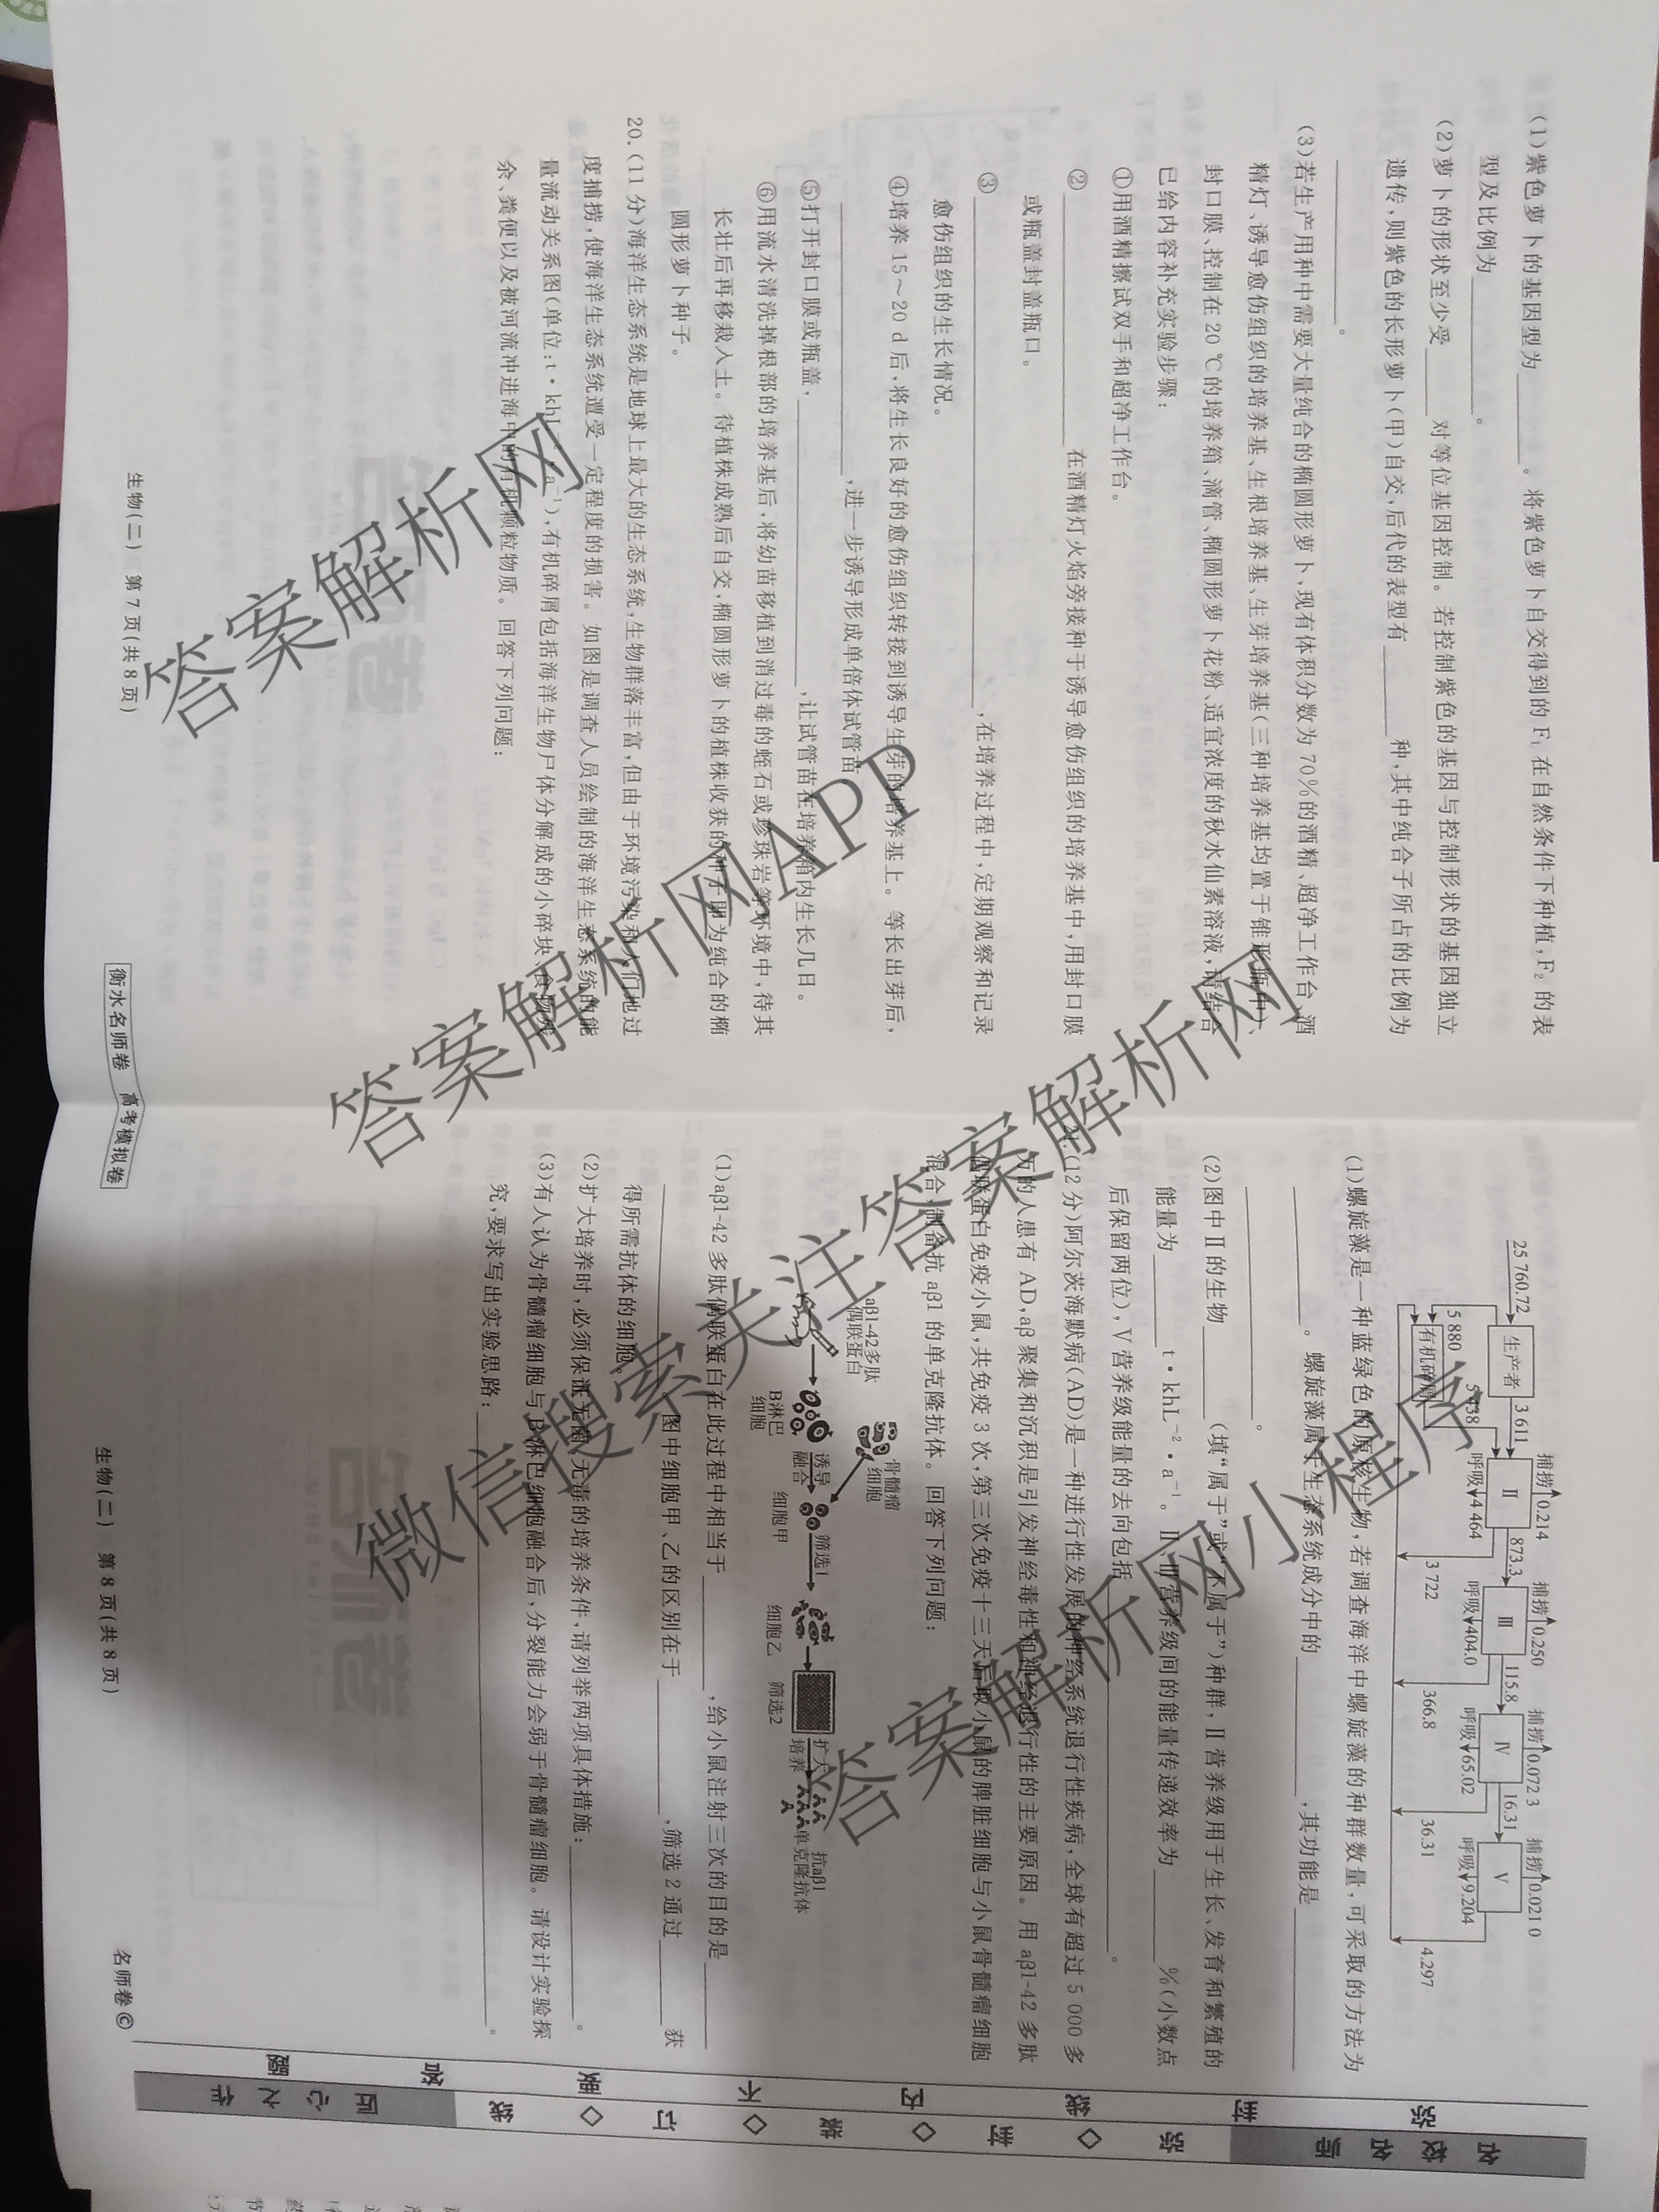 (1)紫色萝卜的基因型为______。将紫色萝卜自交得到的F₁在自然条件下种植,F₂的表
型及比例为______。
(2)萝卜的形状至少受______对等位基因控制。若控制紫色的基因与控制形状的基因独立
遗传,则紫色的长形萝卜(甲)自交,后代的表型有______种,其中纯合子所占的比例为
______。
(3)若生产用种中需要大量纯合的椭圆形萝卜,现有体积分数为70%的酒精、超净工作台、酒
精灯、诱导愈伤组织的培养基、生根培养基、生芽培养基(三种培养基均置于锥形瓶中)、
封口膜、控制在20℃的培养箱、滴管、椭圆形萝卜花粉、适宜浓度的秋水仙素溶液,请结合
已给内容补充实验步骤:
①用酒精擦试双手和超净工作台。
②______在酒精灯火焰旁接种于诱导愈伤组织的培养基中,用封口膜
或瓶盖封盖瓶口。
③______,在培养过程中,定期观察和记录
愈伤组织的生长情况。
④培养15~20 d后,将生长良好的愈伤组织转接到诱导生芽的培养基上。等长出芽后,
______,进一步诱导形成单倍体试管苗。
⑤打开封口膜或瓶盖,______,让试管苗在培养箱内生长几日。
⑥用流水清洗掉根部的培养基后,将幼苗移植到消过毒的蛭石或珍珠岩等环境中,待其
长壮后再移栽入土。待植株成熟后自交,椭圆形萝卜的植株收获的种子即为纯合的椭
圆形萝卜种子。
20.(11分)海洋生态系统是地球上最大的生态系统,生物群落丰富,但由于环境污染和人们地过
度捕捞,使海洋生态系统遭受一定程度的损害。如图是调查人员绘制的海洋生态系统的能
量流动关系图(单位:t·khL⁻²·a⁻¹),有机碎屑包括海洋生物尸体分解成的小碎块、食物残
余、粪便以及被河流冲进海中的有机颗粒物质。回答下列问题:
生物(二) 第7页(共8页)
衡水名师卷 高考模拟卷
25 760.72
生产者
3 611
捕捞 0.214
Ⅱ
873.3
捕捞 0.250
Ⅲ
115.8
捕捞 0.072 3
Ⅳ
16.31
捕捞 0.021 0
Ⅴ
5 880
有机碎屑
呼吸 4 464
呼吸 404.0
呼吸 65.02
呼吸 9.204
3 722
366.8
36.31
4.297
(1)螺旋藻是一种蓝绿色的原核生物,若调查海洋中螺旋藻的种群数量,可采取的方法为
______。螺旋藻属于生态系统成分中的______,其功能是______
______。
(2)图中Ⅱ的生物______(填“属于”或“不属于”)种群,Ⅱ营养级用于生长、发育和繁殖的
能量为______t·khL⁻²·a⁻¹。Ⅱ、Ⅲ营养级间的能量传递效率为______%(小数点
后保留两位),Ⅴ营养级能量的去向包括______。
21.(12分)阿尔茨海默病(AD)是一种进行性发展的神经系统退行性疾病,全球有超过5 000多
万的人患有AD,aβ聚集和沉积是引发神经毒性和神经退行性的主要原因。用aβ1-42多肽
偶联蛋白免疫小鼠,共免疫3次,第三次免疫十三天后取小鼠的脾脏细胞与小鼠骨髓瘤细胞
混合,制备抗aβ1的单克隆抗体。回答下列问题:
aβ1-42多肽
偶联蛋白
B淋巴
细胞
骨髓瘤
细胞
诱导
融合
细胞甲
筛选1
细胞乙
筛选2
扩大
培养
抗aβ1
单克隆抗体
(1)aβ1-42多肽偶联蛋白在此过程中相当于______,给小鼠注射三次的目的是______
______。图中细胞甲、乙的区别在于______,筛选2通过______获
得所需抗体的细胞。
(2)扩大培养时,必须保证无菌、无毒的培养条件,请列举两项具体措施:______。
(3)有人认为骨髓瘤细胞与B淋巴细胞融合后,分裂能力会弱于骨髓瘤细胞。请设计实验探
究,要求写出实验思路:______。
生物(二) 第8页(共8页)
名师卷©
答案解析网
答案解析网APP
微信搜索关注答案解析网
答案解析网小程序